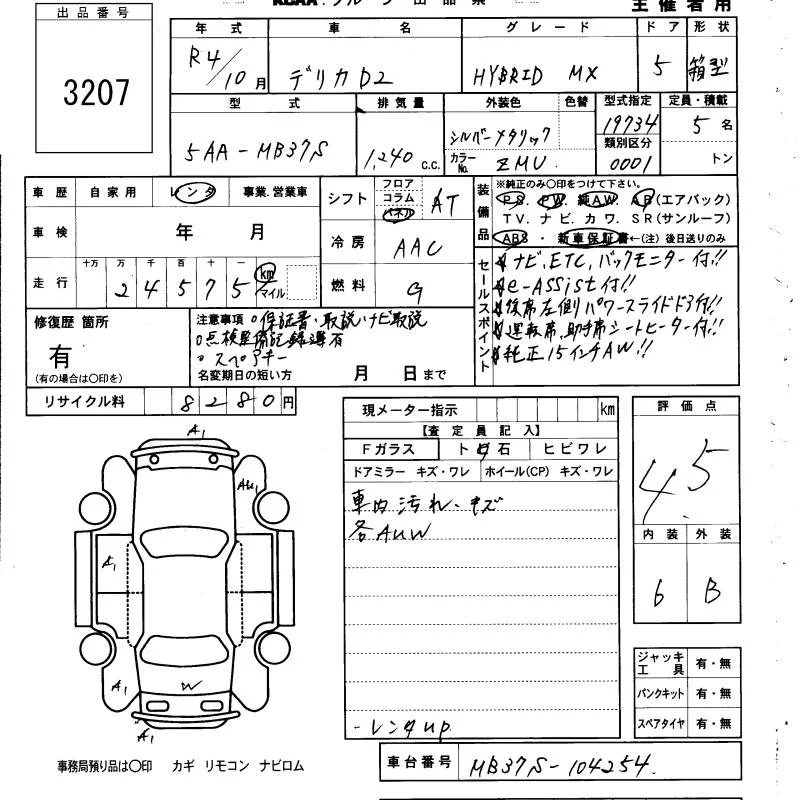 出品番号
3207
主催者用
年式 車名 グレード ドア 形状
R4/10月 デリカD2 HYBRID MX 5 箱型
型式 排気量 外装色 色替 型式指定 定員・積載
5AA-MB37S 1,240 c.c. シルバーメタリック 19734 5名
カラーNo. ZMU 類別区分 0001 トン
車歴 自家用 レンタ 事業.営業車
車検 年 月
走行 十万 万 千 百 十 一
24575 km マイル
シフト フロア コラム パネル AT
冷房 AAC
燃料 G
装備品
※純正のみ〇印をつけて下さい。
PS. PW. 純AW. AB(エアバック)
TV. ナビ. カワ. SR(サンルーフ)
ABS ・ 新車保証書←(注)後日送りのみ
セールスポイント
ナビ, ETC, バックモニター付!!
e-Assist付!!
後席左側パワースライドドア付!!
運転席, 助手席シートヒーター付!!
純正15インチAW!!
修復歴 箇所
有
(有の場合は〇印を)
注意事項 ○保証書・取説・ナビ取説
○点検整備記録簿有
○スペアキー
名変期日の短い方 月 日まで
リサイクル料 8280円
現メーター指示 km
【査定員記入】
Fガラス トビ石 ヒビワレ
ドアミラー キズ・ワレ ホイール(CP) キズ・ワレ
車内汚れ・キズ
各AUW
-レンタup
評価点
4.5
内装 外装
6 B
ジャッキ工具 有・無
パンクキット 有・無
スペアタイヤ 有・無
A1
AU1
A1
A1
W
A1
事務局預り品は〇印 カギ リモコン ナビロム
車台番号 MB37S-104254.